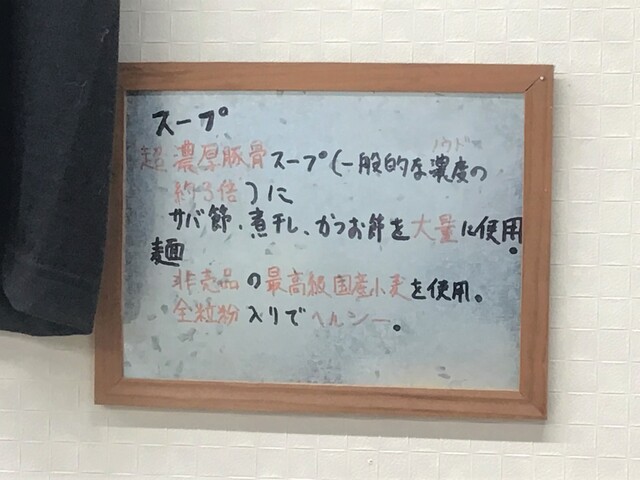 スープ
超濃厚豚骨スープ(一般的な濃度の
ノウド
約3倍)に
サバ節、煮干し、かつお節を大量に使用。
麺
非売品の最高級国産小麦を使用。
全粒粉入りでヘルシー。